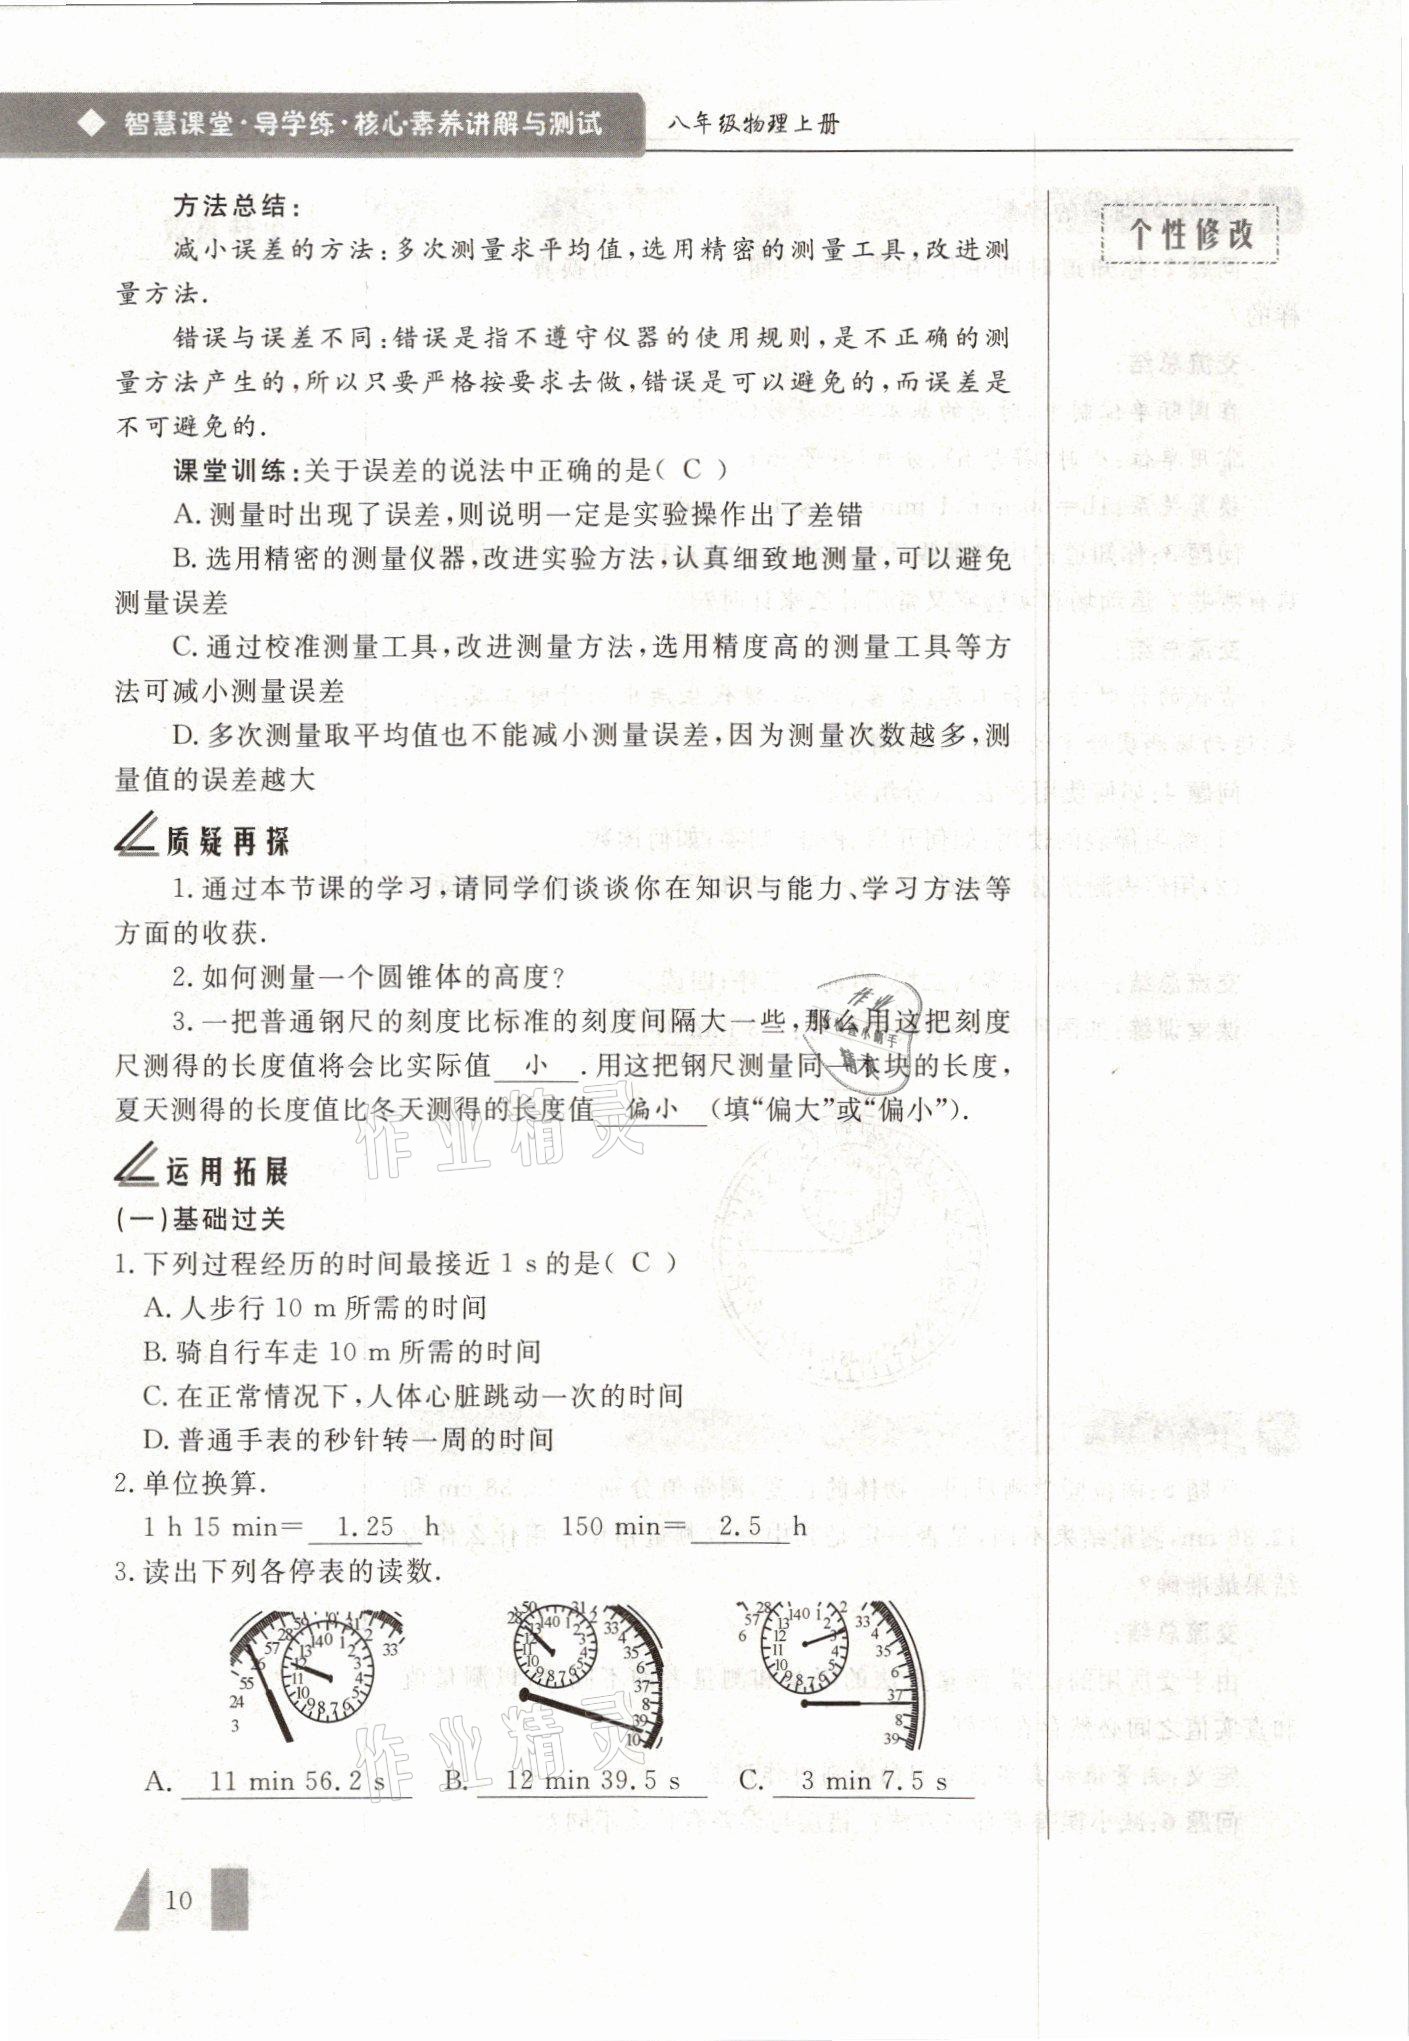 智慧课堂·导学练·核心素养讲解与测试
八年级物理上册
个性修改
方法总结:
减小误差的方法:多次测量求平均值,选用精密的测量工具,改进测
量方法.
错误与误差不同:错误是指不遵守仪器的使用规则,是不正确的测
量方法产生的,所以只要严格按要求去做,错误是可以避免的,而误差是
不可避免的.
课堂训练:关于误差的说法中正确的是( C )
A.测量时出现了误差,则说明一定是实验操作出了差错
B.选用精密的测量仪器,改进实验方法,认真细致地测量,可以避免
测量误差
C.通过校准测量工具,改进测量方法,选用精度高的测量工具等方
法可减小测量误差
D.多次测量取平均值也不能减小测量误差,因为测量次数越多,测
量值的误差越大
质疑再探
1.通过本节课的学习,请同学们谈谈你在知识与能力、学习方法等
方面的收获.
2.如何测量一个圆锥体的高度?
3.一把普通钢尺的刻度比标准的刻度间隔大一些,那么用这把刻度
尺测得的长度值将会比实际值 小 .用这把钢尺测量同一木块的长度,
夏天测得的长度值比冬天测得的长度值 偏小 (填“偏大”或“偏小”).
运用拓展
(一)基础过关
1.下列过程经历的时间最接近 1 s的是( C )
A.人步行 10 m 所需的时间
B.骑自行车走 10 m 所需的时间
C.在正常情况下,人体心脏跳动一次的时间
D.普通手表的秒针转一周的时间
2.单位换算.
1 h 15 min= 1.25 h 150 min= 2.5 h
3.读出下列各停表的读数.
A. 11 min 56.2 s B. 12 min 39.5 s C. 3 min 7.5 s
10
作业精灵
作业精灵